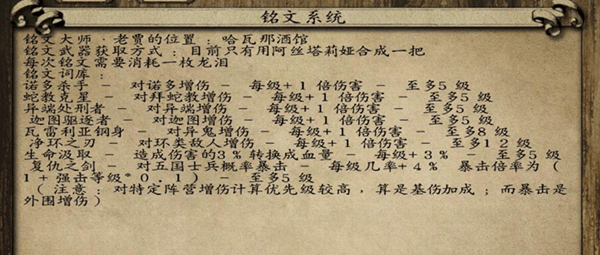 铭文系统
铭文大师·老贾的位置：哈瓦那酒馆
铭文武器获取方式：目前只有用阿丝塔莉娅合成一把
每次铭文需要消耗一枚龙泪
铭文词库：
诺多杀手 - 对诺多增伤 - 每级+1倍伤害 - 至多5级
蛇教克星 - 对拜蛇教增伤 - 每级+1倍伤害 - 至多5级
异端处刑者 - 对异端增伤 - 每级+1倍伤害 - 至多5级
迦图驱逐者 - 对迦图增伤 - 每级+1倍伤害 - 至多5级
瓦雷利亚钢身 - 对异鬼增伤 - 每级+1倍伤害 - 至多8级
净环之刃 - 对环类敌人增伤 - 每级+1倍伤害 - 至多12级
生命汲取 - 造成伤害的3%转换成血量 - 每级+3% - 至多5级
复仇之剑 - 对五国士兵概率暴击 - 每级几率+4% 暴击倍率为（
1+强击等级*0.1） - 至多5级
（注意：对特定阵营增伤计算优先级较高，算是基伤加成；而暴击是
外围增伤）